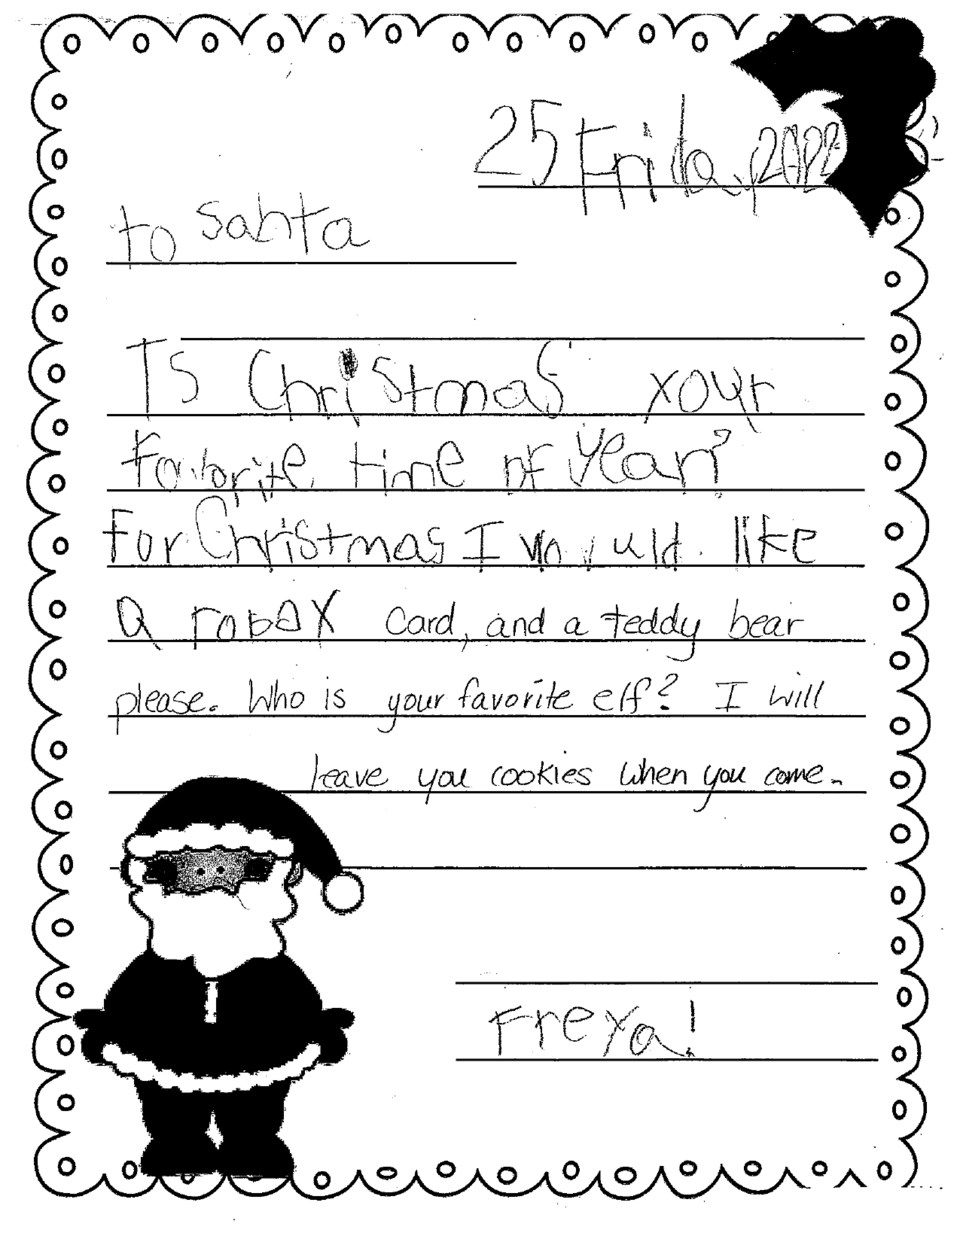 25 Friday, 2022
to Santa
Is Christmas your
favorite time of year?
For Christmas I would like
a robax card, and a teddy bear
please. Who is your favorite elf? I will
leave you cookies when you come.
Freya!